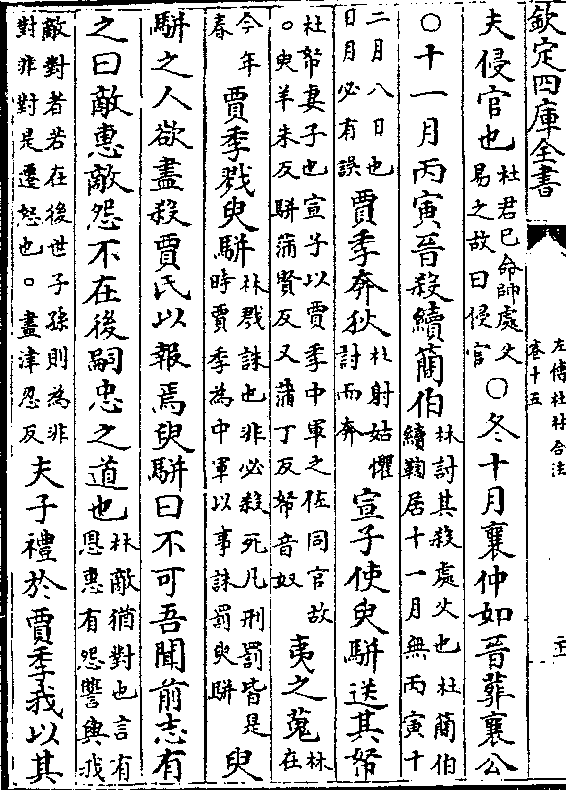 欽定四庫全書
左傳杜林合注
卷十五
夫侵官也杜君已命帥處父易之故曰侵官○冬十月襄仲如晉葬襄公
○十一月丙寅晉殺續簡伯林討其殺處父也杜簡伯續鞫居十一月無丙寅十
二月八日也日月必有誤賈季奔狄杜射姑懼討而奔宣子使臾駢送其帑
杜帑妻子也宣子以賈季中軍之佐同官故。臾羊朱反駢蒲賢反又蒲丁反帑音奴夷之蒐林在
今年春賈季戮臾駢林戮誅也非必殺死凡刑罰皆是時賈季為中軍以事誅罰臾駢臾
駢之人欲盡殺賈氏以報焉臾駢曰不可吾聞前志有
之曰敵惠敵怨不在後嗣忠之道也林敵猶對也言有恩惠有怨讐與我
敵對者若在後世子孫則為非對非對是遷怒也。盡津忍反夫子禮於賈季我以其